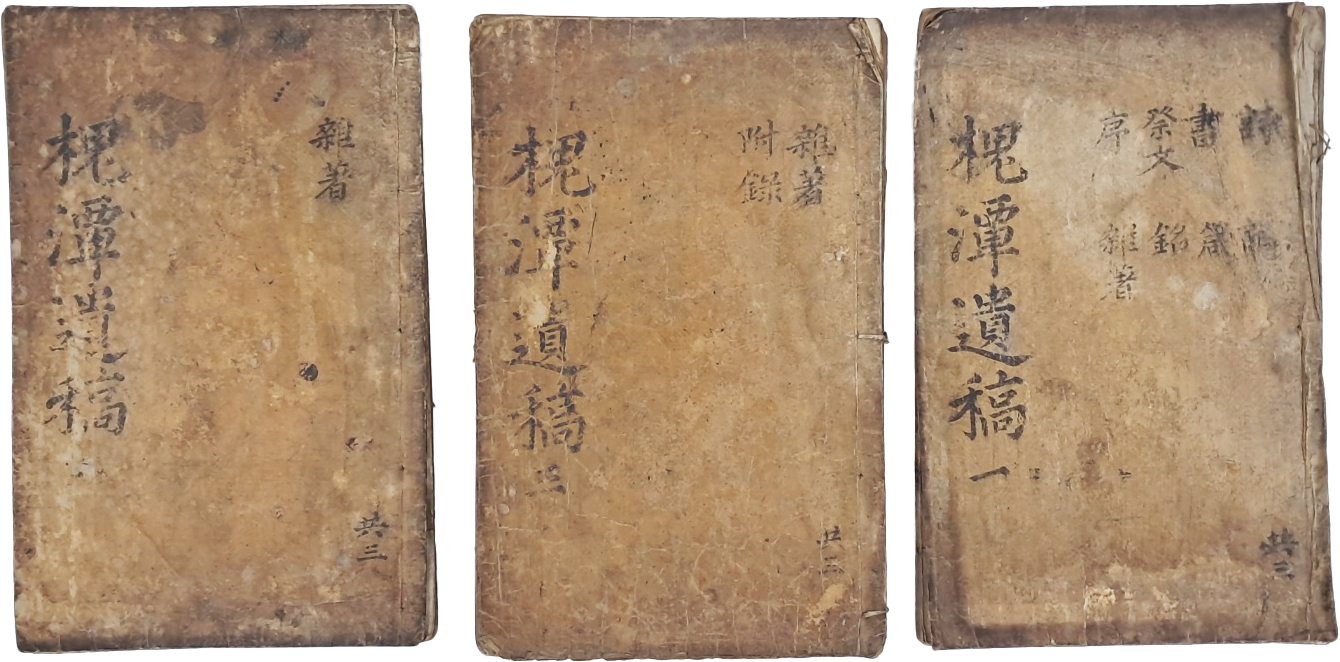 書 箴
祭文 銘
序 雜著
共三
槐潭遺稿 一
雜著
附錄
共三
槐潭遺稿 三
雜著
共三
槐潭遺稿